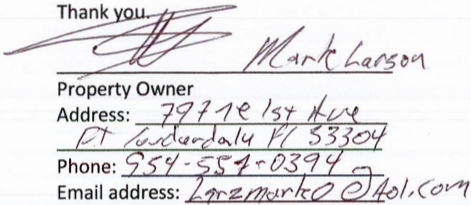 Thank you.
Mark Larson
Property Owner
Address: 797 1e 1st Ave
Ft Lauderdale Fl 33304
Phone: 954-557-0394
Email address: Larzmark0@Aol.com